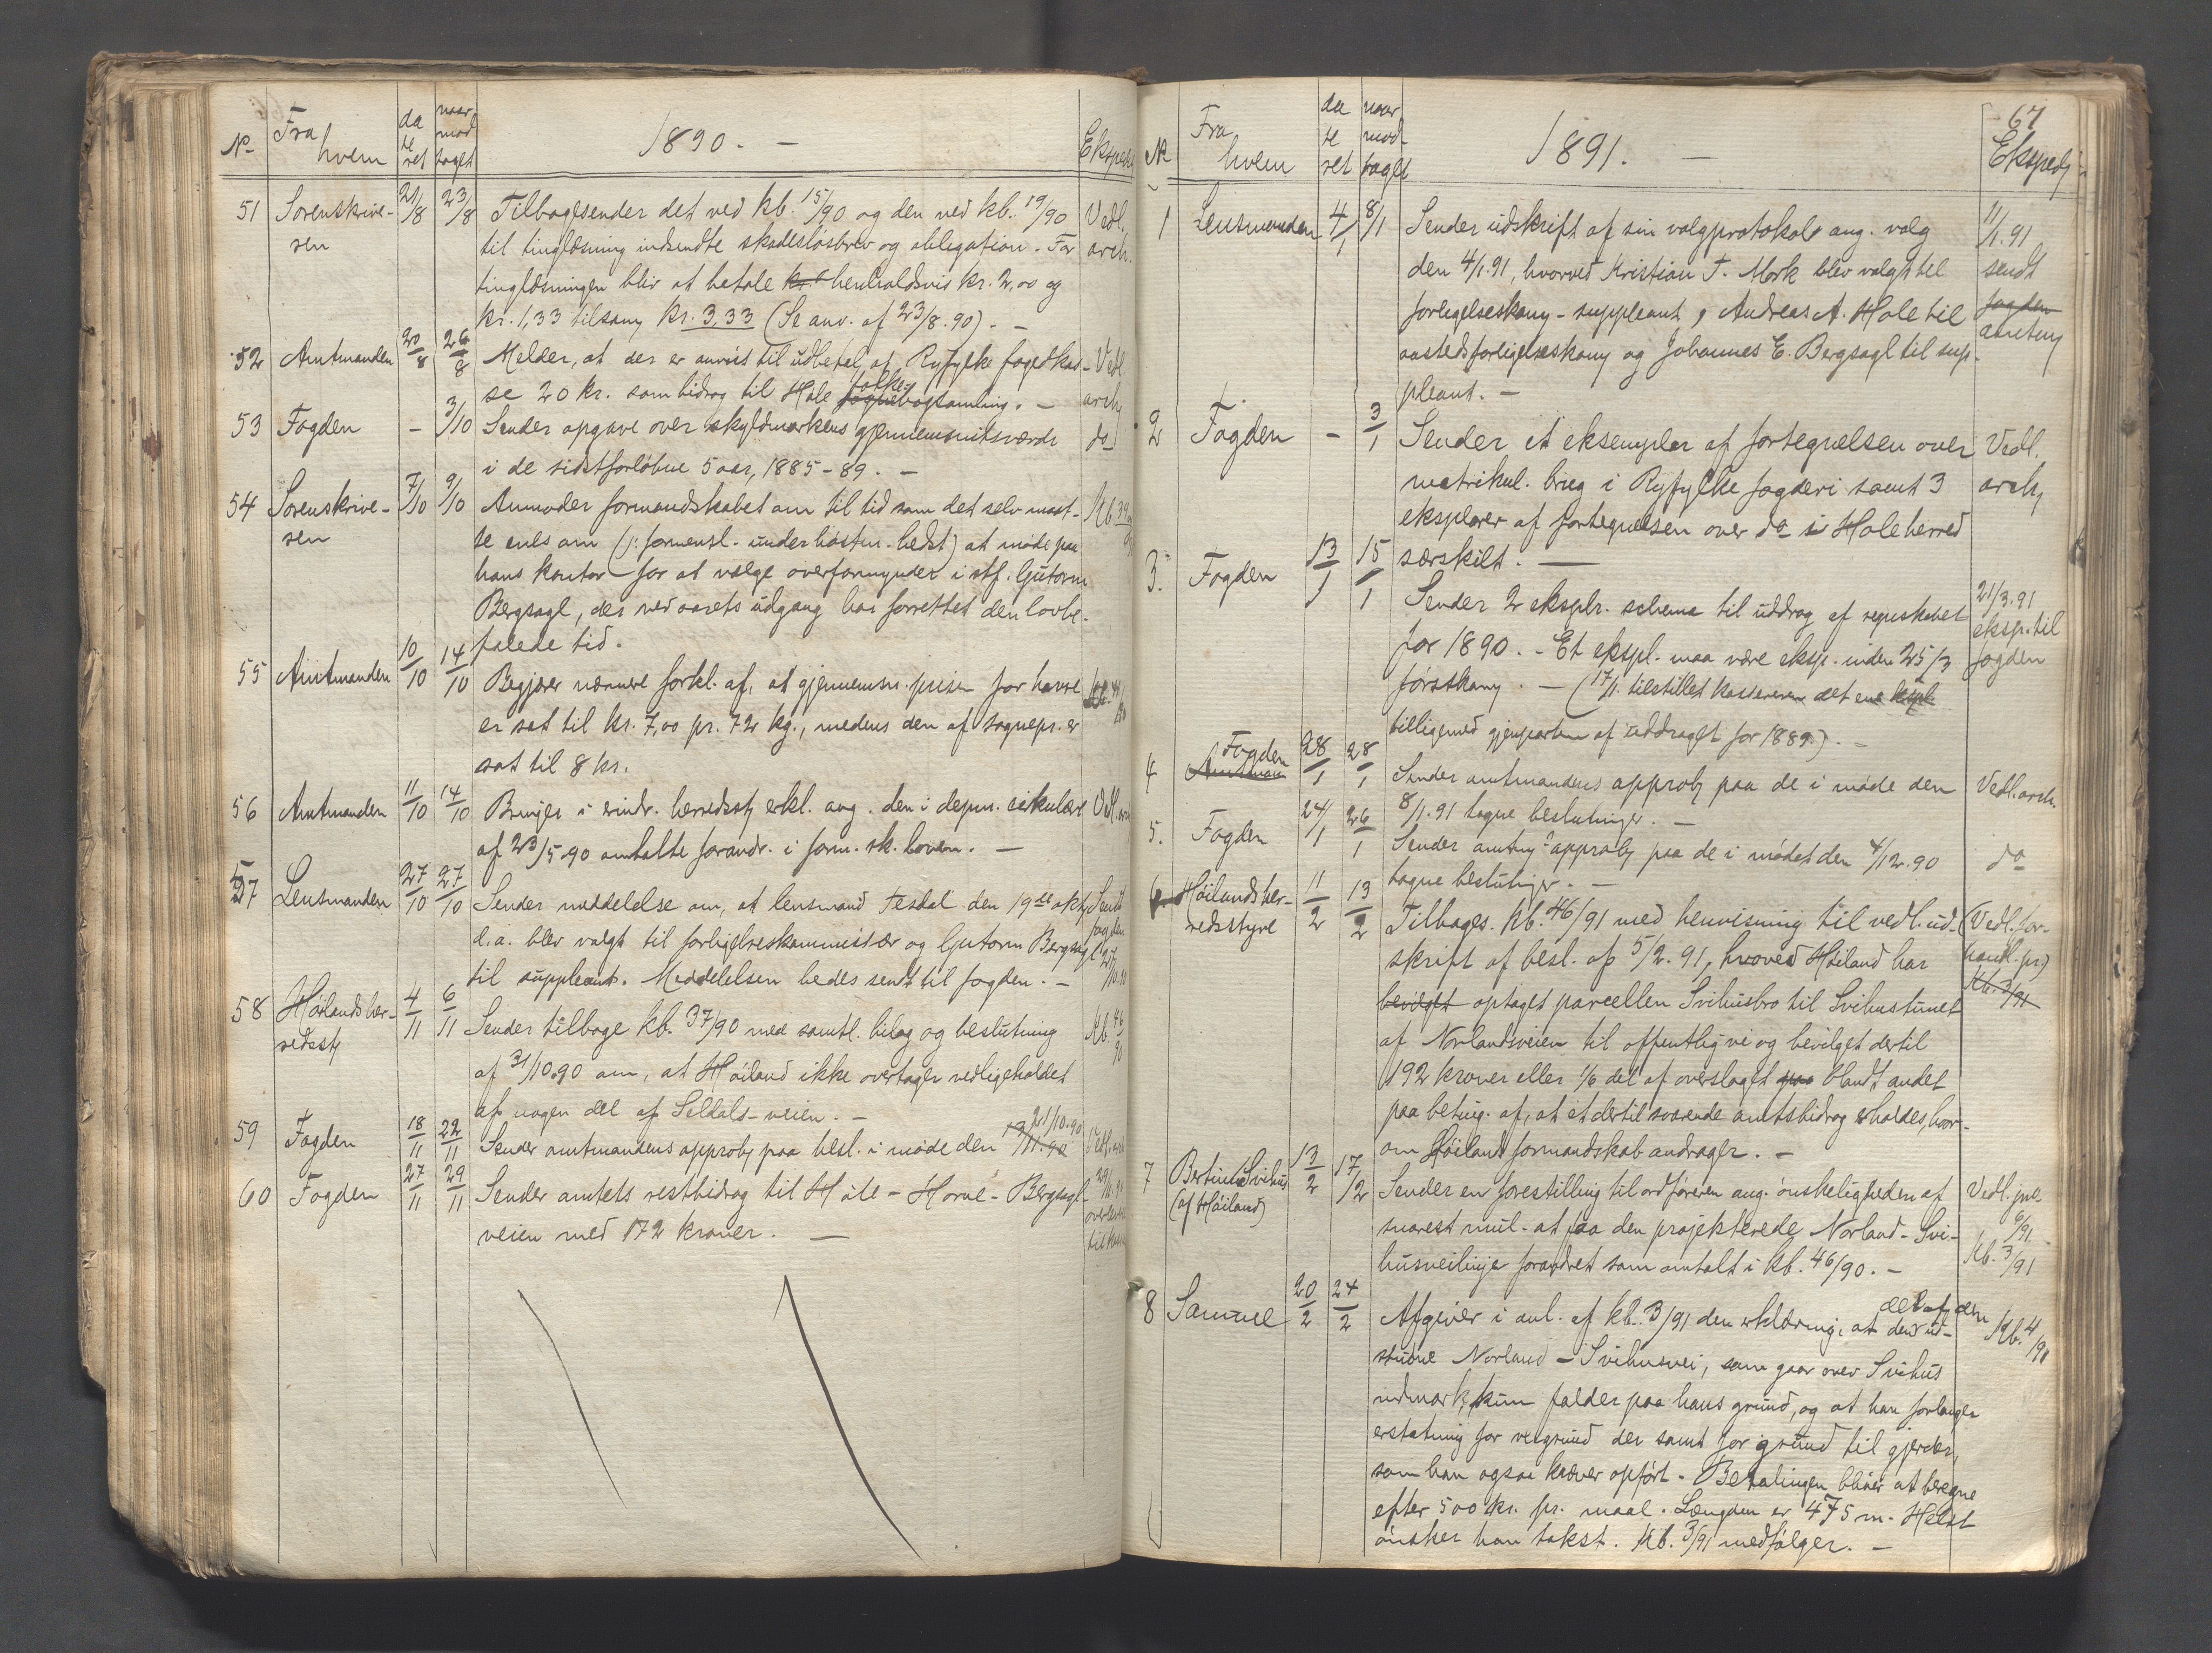 No Fra hvem da te ret naar mod taget 1890. - Eksped
51 Sorenskrive- 21/8 23/8 Tilbagesender det ved kb. 15/90 og den ved kb. 19/90 Vedl.
ren til tinglæsning indsendte skadesløsbrev og obligation. For arch.
tinglæsningen blir at betale henholdsvis kr. 2,00 og
kr. 1,33 tilsam kr. 3,33 (Se anv. af 23/8.90). -
52 Amtmanden 20/8 26/8 Melder, at der er anvist til udbetal. af Ryfylke fogedkas- Vedl
se 20 kr. som bidrag til Hole folkebogsamling. - arch
53 Fogden - 3/10 Sender opgave over skyldmarkens gjennemsnitsværdi do
i de sidstforløbne 5 aar, 1885-89. -
54 Sorenskrive- 7/10 9/10 Anmoder formandskabet om til tid som det selv maat-
ren te enes om (j: forment. under høsten. bedst) at møde paa
hans kontor for at vælge overformynder i stf. Gutorm
Bergsagl, der ved aarets udgang har forrettet den lovbe-
falede tid.
55 Amtmanden 10/10 14/10 Begjærer nærmere forkl. af, at gjennemsn. prisen for havre
er sat til kr. 7,00 pr. 72 kg., medens den af sognepr. er
sat til 8 kr.
56 Amtmanden 11/10 14/10 Bringer i erindr. herredsst erkl. ang. den i depm. sirkulære Vedl. arc
af 23/5.90 omtalte forandr. i form. sk. loven. -
57 Lensmanden 27/10 27/10 Sender meddelelse om, at lensmand Tesdal den 19de okt Sendt
d.a. blev valgt til forligelseskommissær og Gutorm Bergsagl fogden
til suppleant. Meddelelsen bedes sendt til fogden. - 27/10.90
58 Höilands her- 4/11 6/11 Sender tilbage kb. 37/90 med samtl. bilag og beslutning Kb. 46/90
redsst af 31/10.90 om, at Höiland ikke overtager vedligeholdet
af nogen del af Seldals-veien. -
59 Fogden 18/11 22/11 Sender amtmandens approb paa besl. i møde den 21/10.90
60 Fogden 27/11 29/11 Sender amtets restbidrag til Hole - Horve - Bergsagl-
veien med 172 kroner. -
67
No Fra hvem da te ret naar mod- taget 1891. - Eksped
1 Lensmanden 4/1 8/1 Sender udskrift af sin valgprotokol ang. valg 11/1.91
den 4/1.91, hvorved Kristian T. Mork blev valgt til sendt
forligelseskom- suppleant, Andreas A. Hole til fogden
aastedsforligelseskom og Johannes E. Bergsagl til sup- amtm
pleant. -
2 Fogden - 3/1 Sender et eksemplar af fortegnelsen over Vedl.
matrikul. brug i Ryfylke fogderi samt 3 arch
eksplarer af fortegnelsen over do i Hole herred
særskilt. -
3. Fogden 13/1 15/1 Sender 2 eksplr. schema til uddrag af regnskabet 21/3.91
for 1890. - Et ekspl. maa være eksp. inden 25/3 eksp. til
førstkom. - (17/1. tilstillet kassereren det ene ekspl fogden
tilligemed gjenparten af uddraget for 1889.). -
4 Fogden 28/1 28/1 Sender amtmandens approb paa de i møde den Vedl. arch.
8/1.91 tagne beslutninger. -
5. Fogden 24/1 26/1 Sender amtm approb paa de i mødet den 4/12.90 do
tagne beslutninger. -
6 Höilands her- 11/2 13/2 Tilbages. kb. 46/91 med henvisning til vedl. ud- (Vedl. for-
redsstyre skrift af besl. af 5/2.91, hvoved Höiland har handl. pr.)
bevilget optaget parcellen Svihusbro til Svihustunet Kb. 3/91
af Norlandsveien til offentlig vei og bevilget dertil
192 kroner eller 1/6 del af overslaget paa blandt andet
paa beting. af, at et dertil svarende amtsbidrag erholdes, hvor-
om Höiland formandskab andrager. -
7 Bertinius Svihus 13/2 17/2 Sender en forestilling til ordføreren ang. ønskeligheden af Vedl. jnl
(af Höiland) snarest mul. at faa den projekterede Norland - Svi- 6/91
husveilinje forandret som omtalt i kb. 46/90. - Kb. 3/91
8 Samme 20/2 24/2 Afgiver i anl. af kb. 3/91 den erklæring, at del af den ud- Kb. 4/91
stukne Norland - Svihusvei, som gaar over Svihus
udmark, kun falder paa hans grund, og at han forlanger
erstatning for veigrund der samt for grund til gjerder,
som han ogsaa kræver opført. Betalingen bliver at beregne
efter 500 kr. pr. maal. Længden er 475 m. Helst
ønsker han takst. Kb. 3/91 medfølger. -